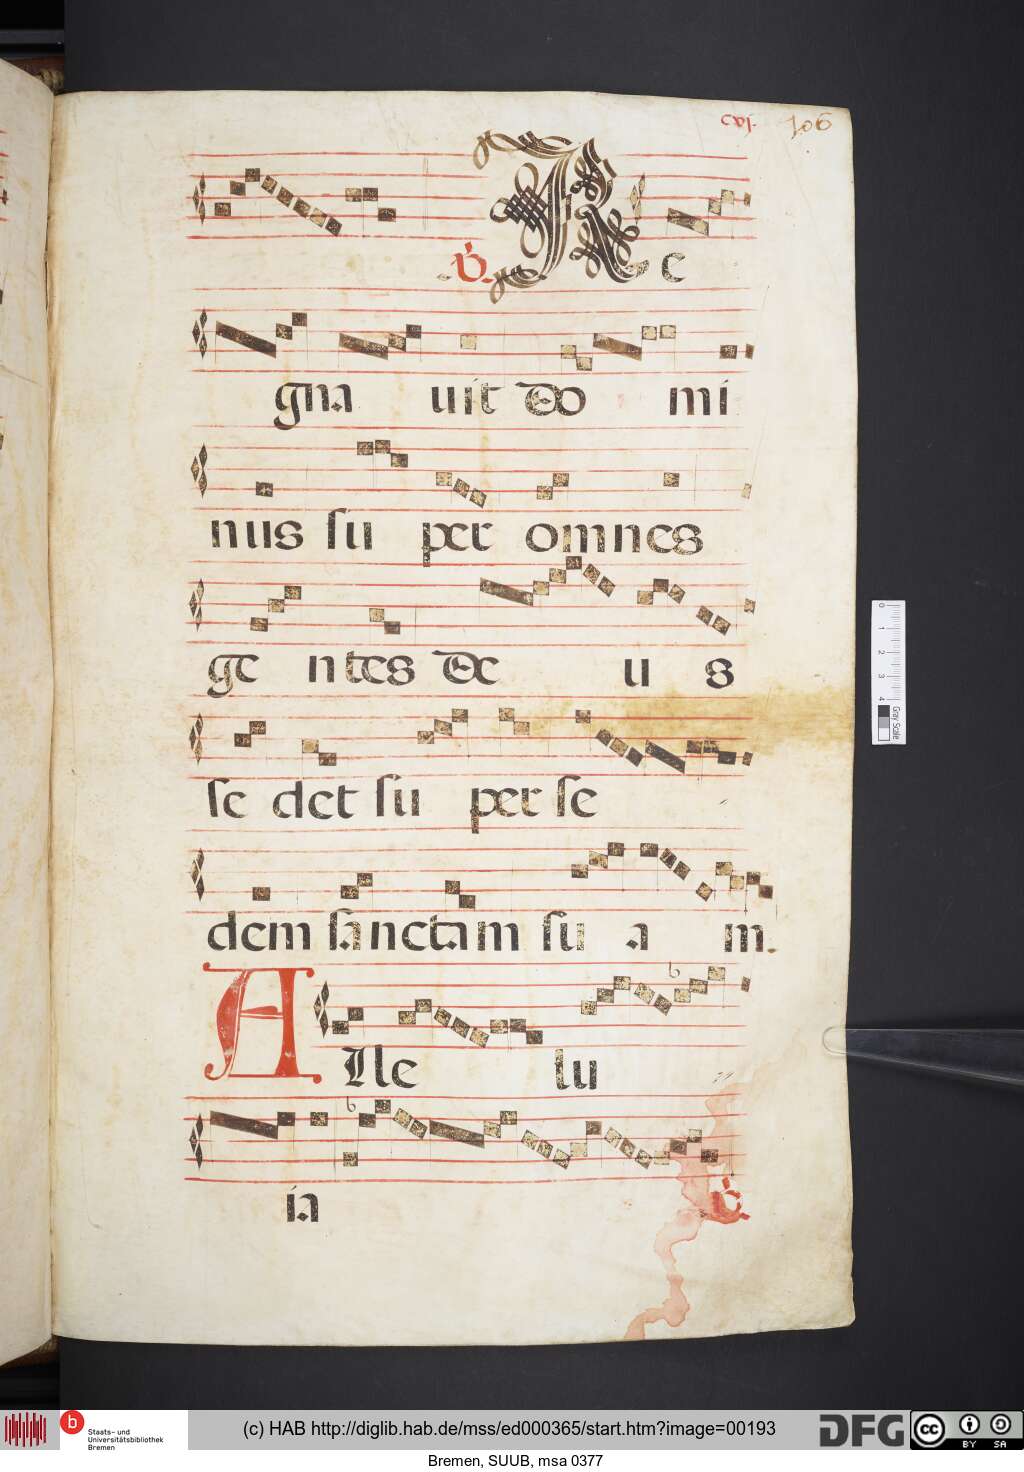 cvj. 106
℣. Re
gna uit do mi
nus su per omnes
ge ntes De u s
se det su per se
dem sanctam su a m.
Alle lu
ia
℣.
0 1 2 3 4 Gray Scale
Staats- und
Universitätsbibliothek
Bremen
(c) HAB http://diglib.hab.de/mss/ed000365/start.htm?image=00193
DFG
cc BY SA
Bremen, SUUB, msa 0377